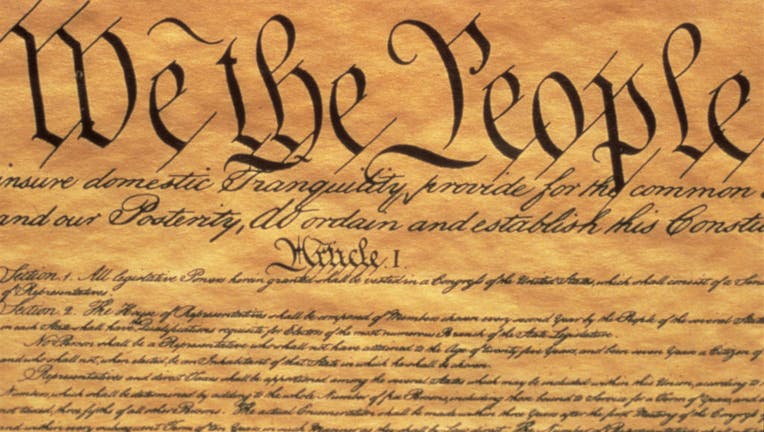 We the People
insure domestic Tranquility, provide for the common
and our Posterity, do ordain and establish this Constitu
Article. I.
Section. 1. All legislative Powers herein granted shall be vested in a Congress of the United States, which shall consist of a Sena
of Representatives.
Section. 2. The House of Representatives shall be composed of Members chosen every second Year by the People of the several State
in each State shall have the Qualifications requisite for Electors of the most numerous Branch of the State Legislature.
No Person shall be a Representative who shall not have attained to the Age of twenty five Years, and been seven Years a Citizen of
and who shall not, when elected, be an Inhabitant of that State in which he shall be chosen.
Representatives and direct Taxes shall be apportioned among the several States which may be included within this Union, according to
Numbers, which shall be determined by adding to the whole Number of free Persons, including those bound to Service for a Term of Years, and
not taxed, three fifths of all other Persons. The actual Enumeration shall be made within three Years after the first Meeting of the Congress of
and within every subsequent Term of ten Years, in such Manner as they shall by Law direct. The Number of Representatives shall not